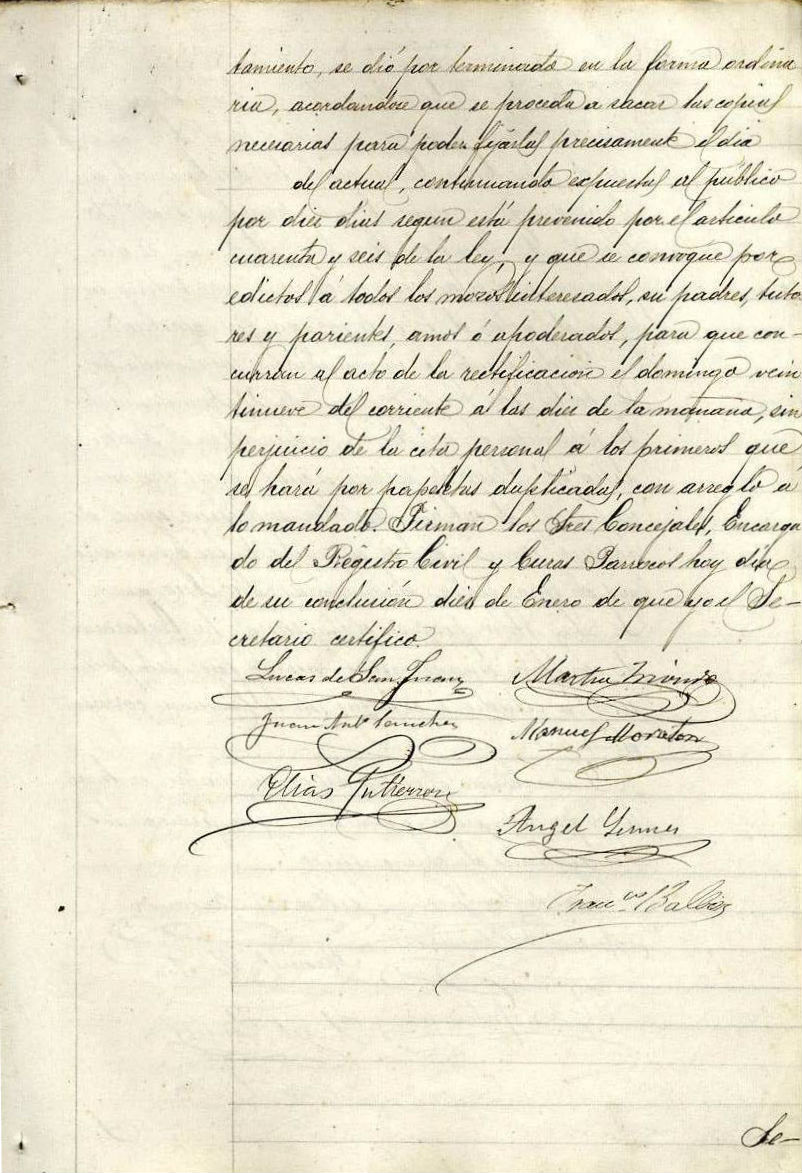 tamiento, se dió por terminada en la forma ordina
ria, acordandose que se proceda a sacar las copias
necesarias para poder fijarlas precisamente el dia
del actual, continuando expuestas al público
por dies dias segun está prevenido por el articulo
cuarenta y seis de la ley, y que se convoque por
edictos á todos los mozos interesados, su padres, tuto
res y parientes, amos ó apoderados, para que con-
curran al acto de la rectificacion el domingo vein
tinueve del corriente á las dies de la mañana, sin
perjuicio de la cita personal á los primeros que
se hará por papeletas duplicadas, con arreglo á
lo mandado. Firman los Sres Concejales, Encarga
do del Registro Civil y Curas Parrocos hoy dia
de su conclusión dies de Enero de que yo el Se-
cretario certifico.
Lucas de San Juan
Martin
Juan Antº Sanchez
Manuel Moraton
Elias Gutierrez
Angel
Francº
Se-